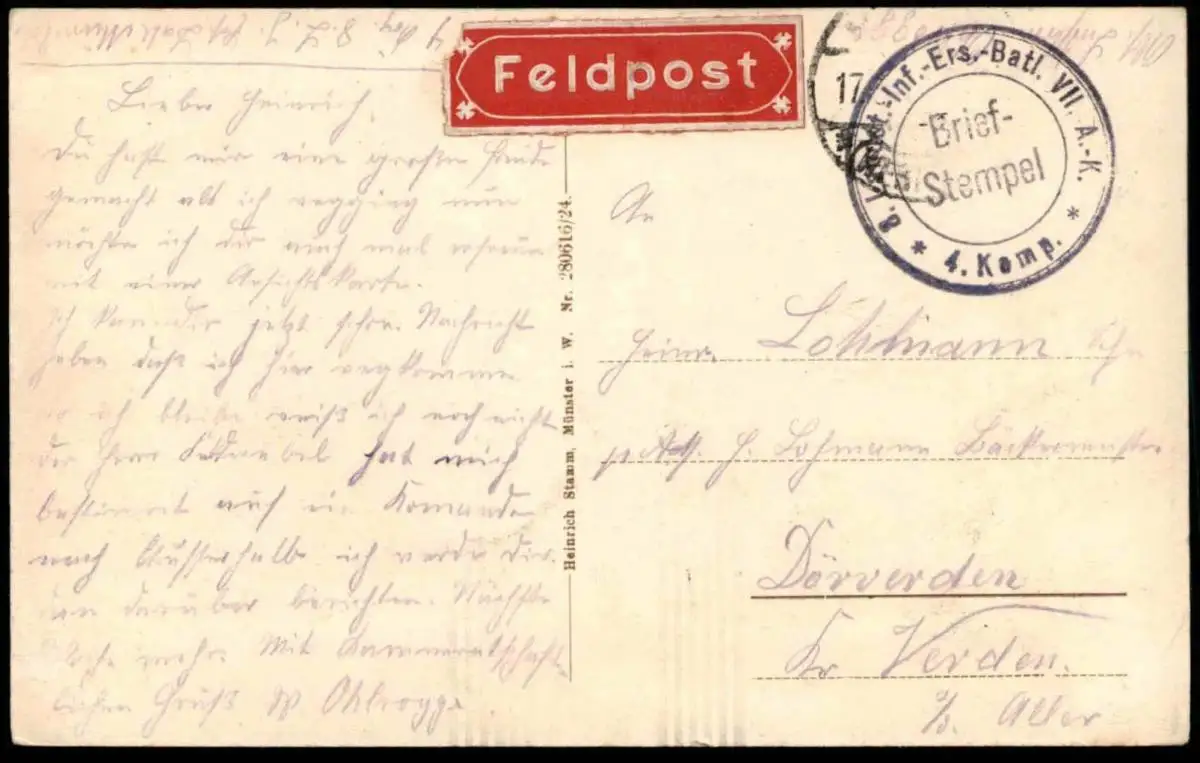 Feldpost
17
8. Landst.-Inf.-Ers.-Batl. VII. A.-K.
* 4. Komp. *
-Brief-
Stempel
Lieber Heinrich,
Du hast mir eine große Freude
gemacht als ich nun
möchte ich dir auch mal
mit einer Ansichtskarte.
Ich kann dir jetzt schon Nachricht
geben daß ich hier wegkomme
wo ich bleibe weiß ich noch nicht
der Herr Feldwebel hat mich
bestimmt auf ein Komando
nach ich werde Dir
dan darüber berichten. Nächste
mehr. Mit Kammeratschaft-
lichem Gruß W Ohlrogge
Heinrich Stamm, Münster i. W. Nr. 280616/24.
An
Heinr. Lohmann
p. Adr. H. Lohmann Bäckermeister
Dörverden
Kr Verden.
b. Aller